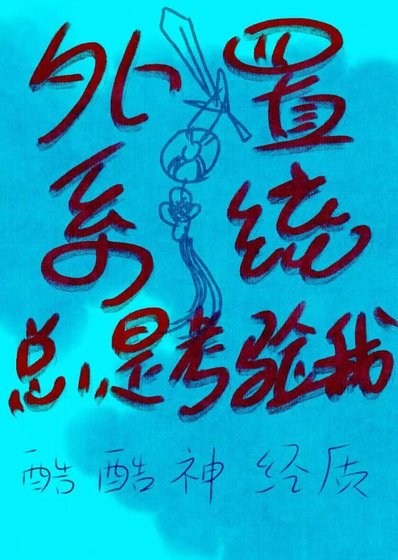 外置
系统
总是考验我
酷酷神经质